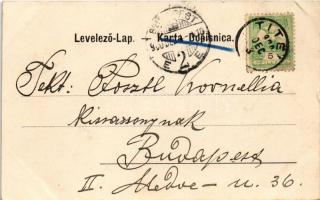 Levelező-Lap. Karta Dopisnica.
TITEL
Tekt: Posztl Kornellia
kisasszonynak
Budapest
II. Medve-u. 36.